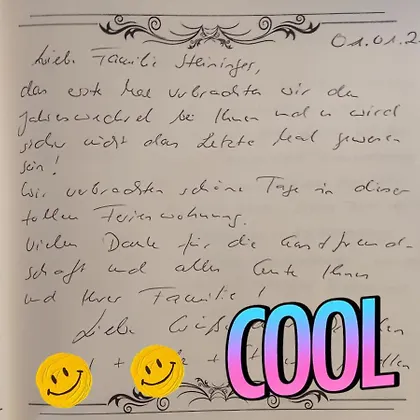 01.01.2
Liebe Familie Steininger,
das erste Mal verbrachten wir den
Jahreswechsel bei Ihnen und es wird
sicher nicht das letzte Mal gewesen
sein!
Wir verbrachten schöne Tage in dieser
tollen Ferienwohnung.
Vielen Dank für die Gastfreund-
schaft und alles Gute Ihnen
und Ihrer Familie!
Liebe
+ +
COOL